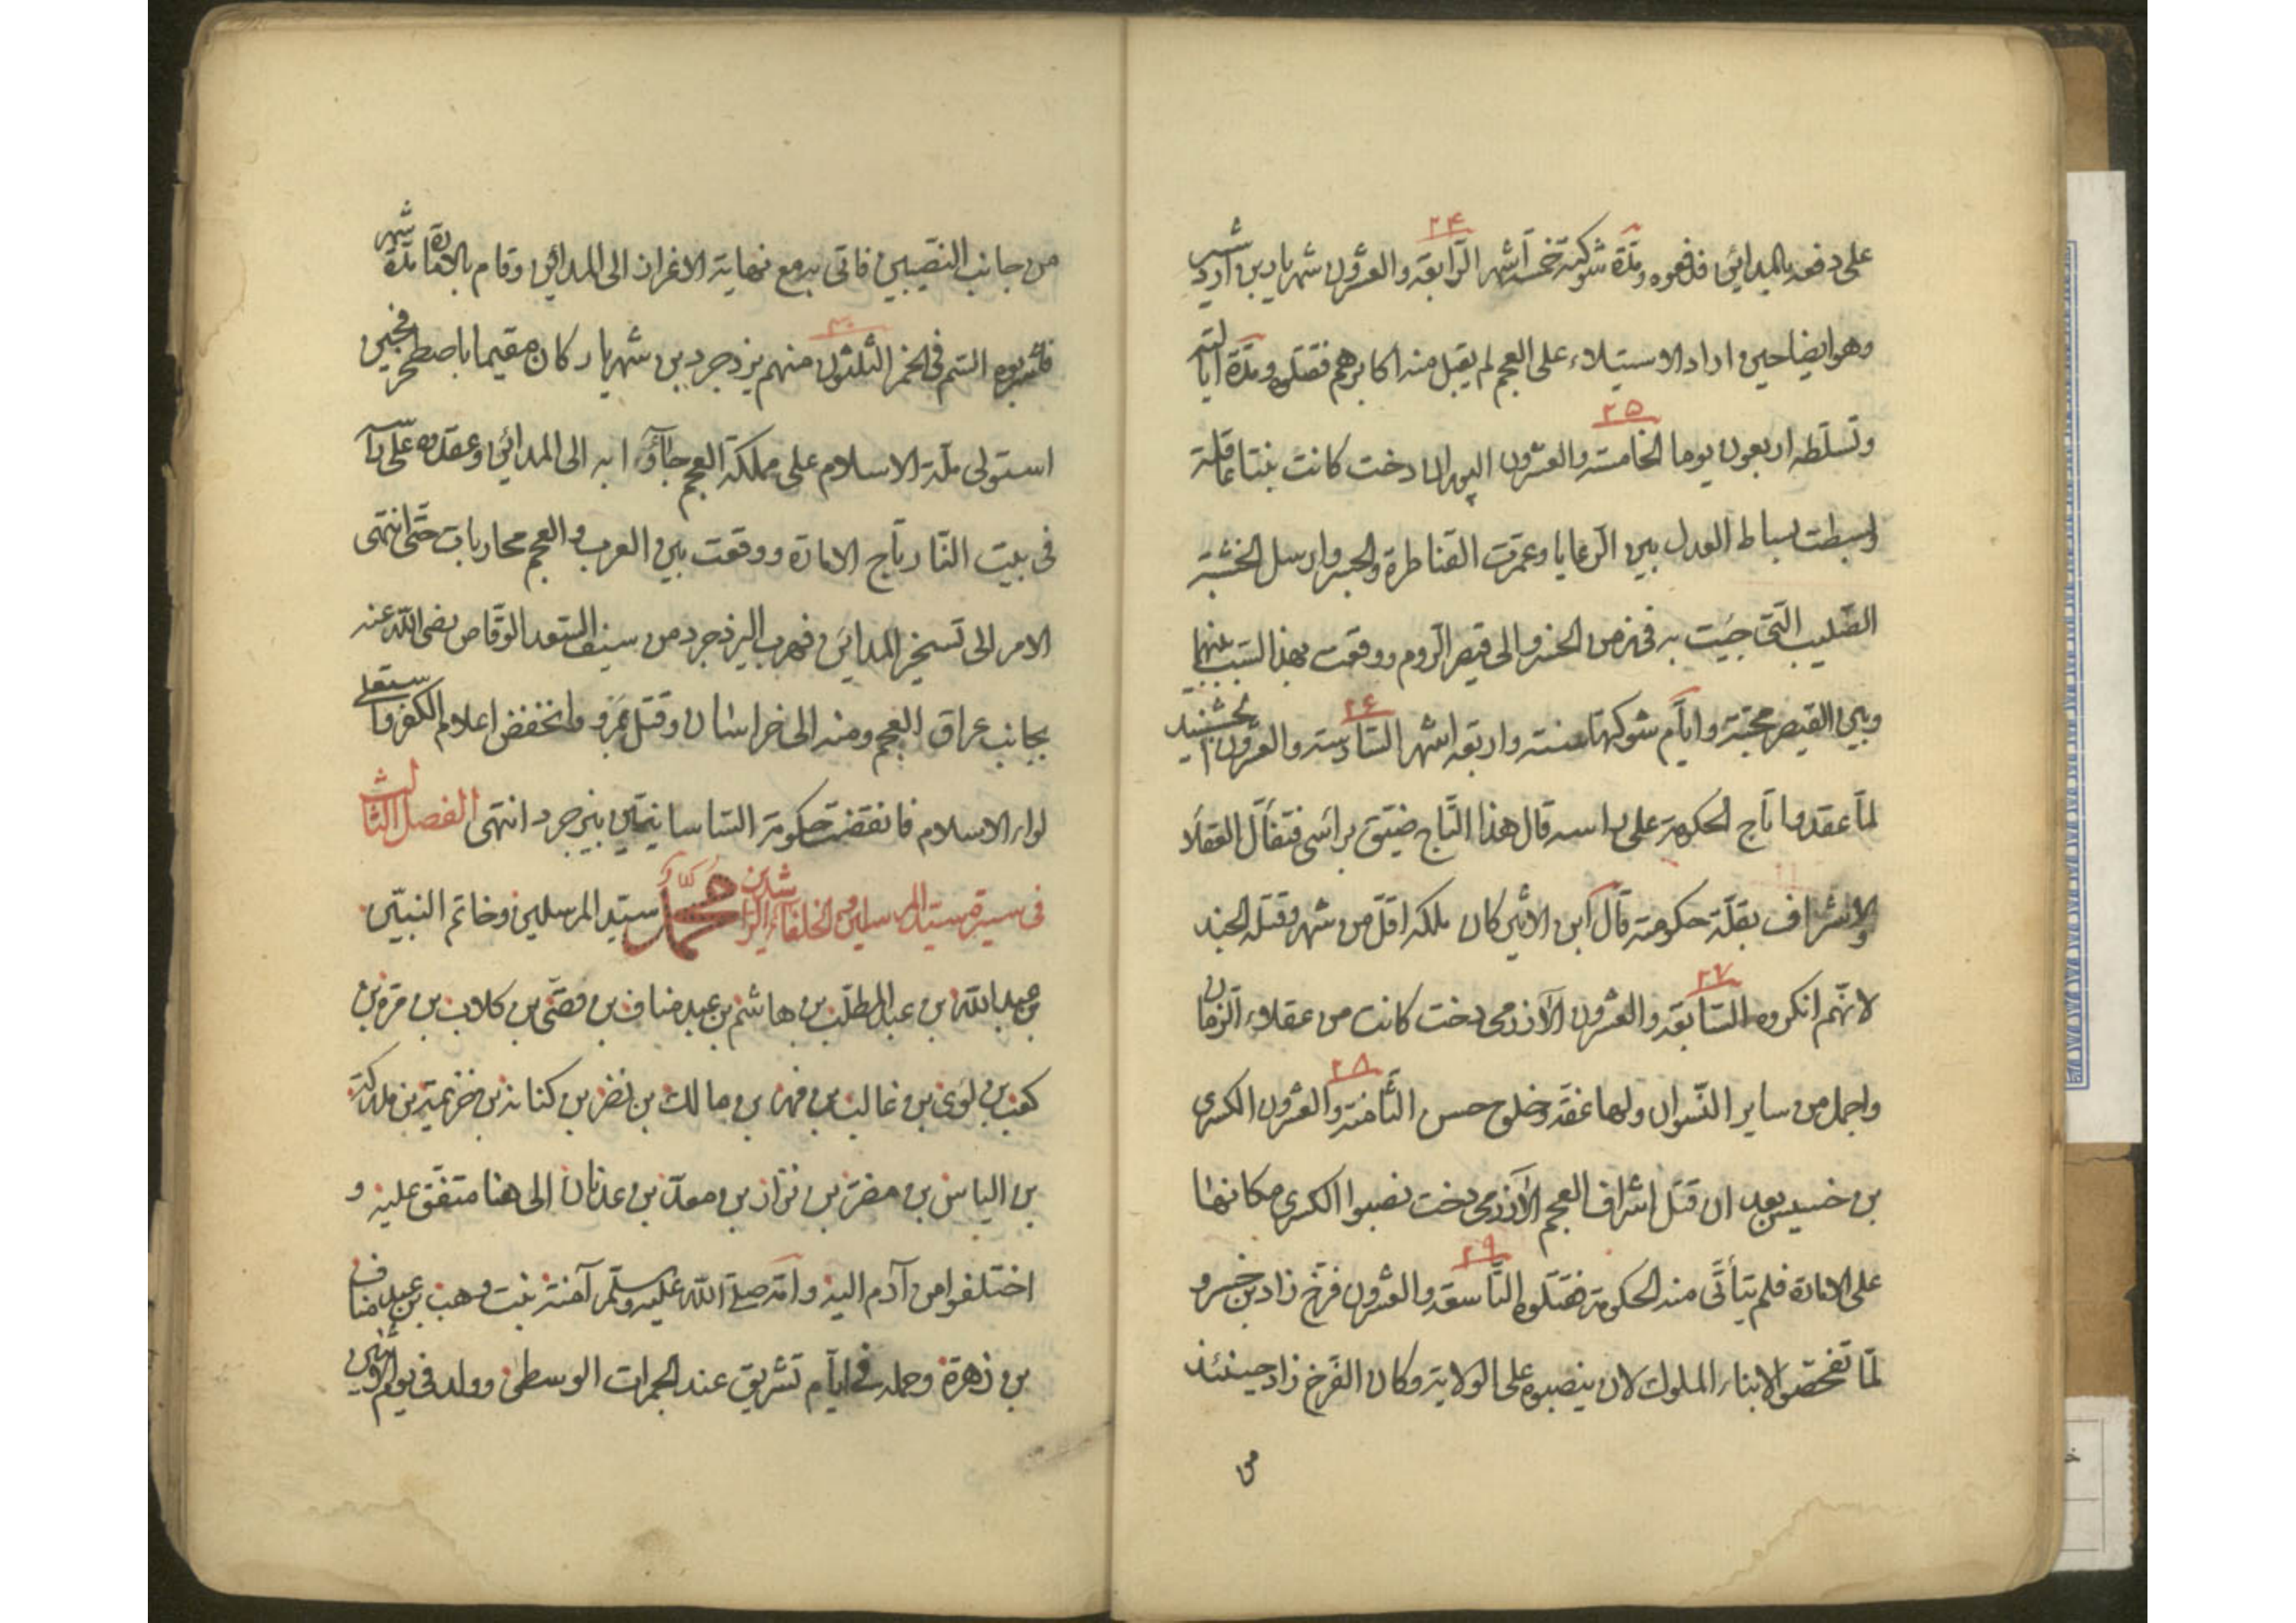 ٢٤
على دفعه بالمدائن فدفعوه ومدّة شوكته خمسة اشهر الرّابعة والعشرون شهريار بن اردشير
وهو ايضا حين اراد الاستيلاء على العجم لم يقبل منه اكابرهم فقتلوه ومدّة ايالته
٢٥
وتسلّطه اربعون يوما الخامسة والعشرون البوران دخت كانت بنتا عاقلة
وبسطت بساط العدل بين الرّعايا وعمرت القناطرة والجسر وارسل الخشبة
الصّليب الّتى جيت به فى زمن الخسرو الى قيصر الرّوم ووقعت بهذا السّبب بينها
٢٦
وبين القيصر محبّة وايّام شوكتها سنة واربعة اشهر السّادسة والعشرون
لمّا عقدوا تاج الحكومة على راسه قال هذا التّاج ضيّق براسى فتفأّل العقلا
والاشراف بقلّة حكومته قال ابن الاثير كان ملكه اقلّ من شهر وقتله الجند
٢٧
لانّهم انكروه السّابعة والعشرون الآزرمى دخت كانت من عقلاء الزّمان
٢٨
واجمل من ساير النّسوان ولها عفّة وخلوح حسن الثّامنة والعشرون الكسرى
بن خسيس بعد ان قتل اشراف العجم الآزرمى دخت نصبوا الكسرى مكانها
٢٩
على الامارة فلم يتأتّى منه الحكومة فقتلوه التّاسعة والعشرون فرّخ زاد بن خسرو
لمّا تفحّصوا لابناء الملوك لان ينصبوه على الولاية وكان الفرّخ زاد حينئذ
من
من جانب النّصيبين فاتى به مع نهاية الاغراز الى المدائن وقام بالامارة مدّة شهر
٣٠
فاشربوه السّم فى الخمر الثّلثون منهم يزدجرد بن شهريار كان مقيما باصطخر فحين
استولى ملّة الاسلام على مملكة العجم جاؤا به الى المدائن وعقدوه على راسه
فى بيت النّار تاج الامارة ووقعت بين العرب والعجم محاربات حتّى انتهى
الامر الى تسخير المدائن فهرب اليزدجرد من سيف السّعد الوقّاص رضى اللّه عنه
بجانب عراق العجم ومنه الى خراسان وقتل بمرو وانخفض اعلام الكفر واستعلى
لواء الاسلام فانقضت حكومة السّاسانيّين بيزجرد انتهى الفصل الثّالث
فى سيرة سيّد المرسلين والخلفاء الرّاشدين محمّد سيّد المرسلين وخاتم النبيّن
بن عبد اللّه بن عبد المطلّب بن هاشم بن عبد مناف بن قصّى بن كلاب بن مرة بن
كعب بن لوى بن غالب بن فهر بن مالك بن نضر بن كنانة بن خزيمة بن مدركة
بن الياس بن مضر بن نزار بن معدّ بن عدنان الى هنا متفّق عليه و
اختلفوا من آدم اليه وامّه صلّى اللّه عليه وسلّم آمنة بنت وهب بن عبد مناف
بن زهرة وحمله فى ايّام تشريق عند الجمرات الوسطى وولد فى يوم الاثنين